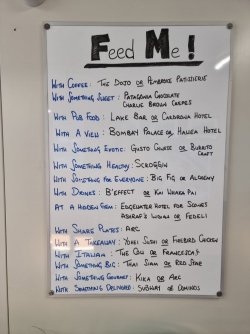 Feed Me!
With Coffee: The Dojo or Pembroke Patisserie
With Something Sweet: Patagonia Chocolate
Charlie Brown Crepes
With Pub Food: Lake Bar or Cardrona Hotel
With A View: Bombay Palace or Hawea Hotel
With Something Exotic: Gusto Grouse or Burrito
Craft
With Something Healthy: Scroggin
With Something for Everyone: Big Fig or Alchemy
With Drinks: B'effect or Kai Whaka Pai
At a Hidden Gem: Edgewater Hotel for Scones
Ashraf's Indian or Fedeli
With Share Plates: Arc
With A Takeaway: Yohei Sushi or Firebird Chicken
With Italian: The Cow or Francesca's
With Something Big: Thai Siam or Red Star
With Something Gourmet: Kika or Arc
With Something Delivered: Subway or Dominos